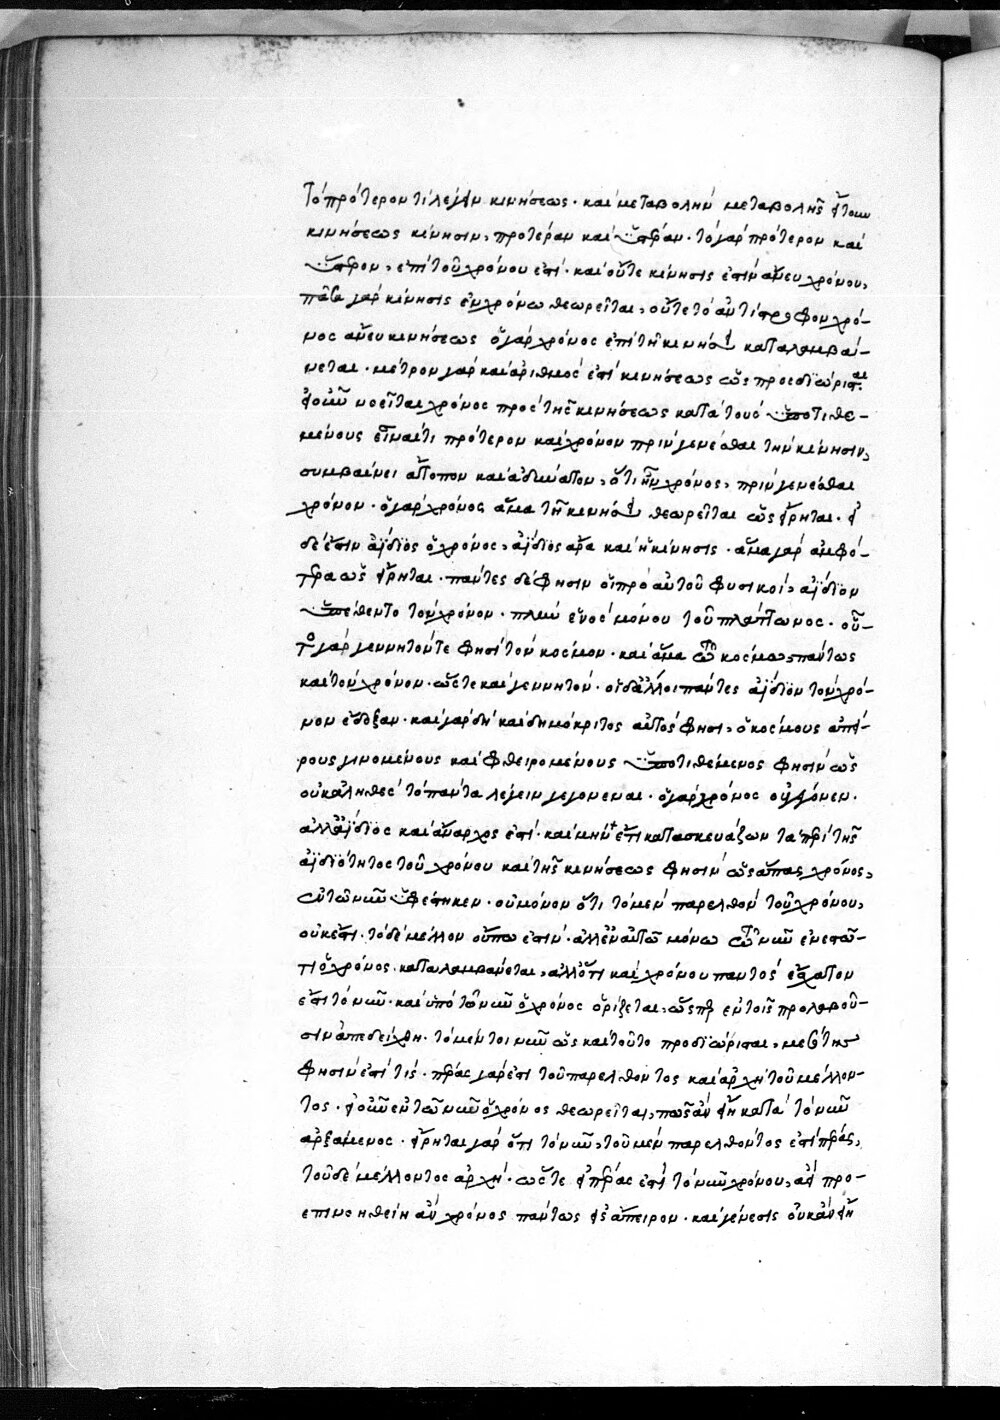 Τὸ πρότερον τί λέγειν κινήσεως· καὶ μεταβολὴν μεταβολῆς ἤτοι
κινήσεως κίνησιν, προτέραν καὶ ὑστέραν· τὸ γὰρ πρότερον καὶ
ὕστερον, ἐπὶ τοῦ χρόνου ἐστί· καὶ οὔτε κίνησις ἐστὶν ἄνευ χρόνου,
πᾶσα γὰρ κίνησις ἐν χρόνω θεωρεῖται, οὔτε τὸ ἀντίστροφον χρό-
νος ἄνευ κινήσεως ὁ γὰρ χρόνος ἐπὶ τῆ κινήσει καταλαμβάι-
νεται· μέτρον γὰρ καὶ ἀριθμός ἐστὶ κινήσεως ὡς προεδιώρισται
εἰ οὖν νοεῖται χρόνος πρὸς τῆς κινήσεως κατὰ τοὺς ὑποτιθε-
μένους εἶναί τι πρότερον καὶ χρόνον πρὶν γενέσθαι τὴν κίνησιν,
συμβαίνει ἄτοπον καὶ ἀδύνατον, ὅτι ἦν χρόνος, πρὶν γενέσθαι
χρόνον· ὁ γὰρ χρόνος ἅμα τῆ κινήσει θεωρεῖται ὡς εἴρηται· εἰ
δέ ἐστιν ἀΐδιος ὁ χρόνος, ἀΐδιος ἄρα καὶ ἡ κίνησις· ἅμα γὰρ ἀμφό-
τερα ὡς εἴρηται· πάντες δέ φησιν οἱ πρὸ αὐτοῦ φυσικοὶ, ἀΐδιον
ὑπέθεντο τὸν χρόνον· πλὴν ἑνὸς μόνου τοῦ πλάτωνος· οὗ-
τος γὰρ γεννητόν τε φησὶ τὸν κόσμον· καὶ ἅμα τῶ κόσμω πάντως
καὶ τὸν χρόνον· ὥστε καὶ γεννητόν· οἱ δ' ἄλλοι πάντες ἀΐδιον τὸν χρό-
νον ἔδοξαν· καὶ γὰρ δὴ καὶ δημόκριτος αὐτός φησι, ὁ κόσμους ἀπεί-
ρους γινομένους καὶ φθειρομένους ὑποτιθέμενος φησὶν ὡς
οὐκ ἀληθὲς τὸ πάντα λέγειν γεγονέναι· ὁ γὰρ χρόνος οὐ γέγονεν·
ἀλλ' ἀΐδιος καὶ ἄναρχος ἐστί· καὶ μὴν ἔτι κατασκευάζων τὰ περὶ τῆς
ἀϊδιότητος τοῦ χρόνου καὶ τῆς κινήσεως φησὶν ὡς ἅπας χρόνος,
ἐν τῶ νῦν ὑφέστηκεν· οὐ μόνον ὅτι τὸ μὲν παρελθὸν τοῦ χρόνου,
οὐκέτι· τὸ δὲ μέλλον οὔπω ἐστίν· ἀλλ' ἐν αὐτῶ μόνω τῶ νῦν ἐνεστῶ-
τι ὁ χρόνος καταλαμβάνεται, ἀλλ' ὅτι καὶ χρόνου παντὸς ἔσχατον
ἐστὶ τὸ νῦν· καὶ ὑπὸ τῶν νῦν ὁ χρόνος ὁρίζεται, ὥσπερ ἐν τοῖς προλαβοῦ-
σιν ἀπεδείχθη· τὸ μέντοι νῦν ὡς καὶ τοῦτο προδιώρισται, μεσότης
φησὶν ἐστί τις· πέρας γάρ ἐστι τοῦ παρελθόντος καὶ ἀρχὴ τοῦ μέλλον-
τος· εἰ οὖν ἐν τῶ νῦν ὁ χρόνος θεωρεῖται, πῶς ἂν εἴη κατὰ τὸ νῦν
ἀρξάμενος· εἴρηται γὰρ ὅτι τὸ νῦν, τοῦ μὲν παρελθόντος ἐστὶ πέρας,
τοῦ δὲ μέλλοντος ἀρχή· ὥστε εἰ πέρας ἐστὶ τὸ νῦν χρόνου, ἀεὶ προ-
επινοηθείη ἂν χρόνος πάντως εἰς ἄπειρον· καὶ γένεσις οὐκ ἂν εἴη